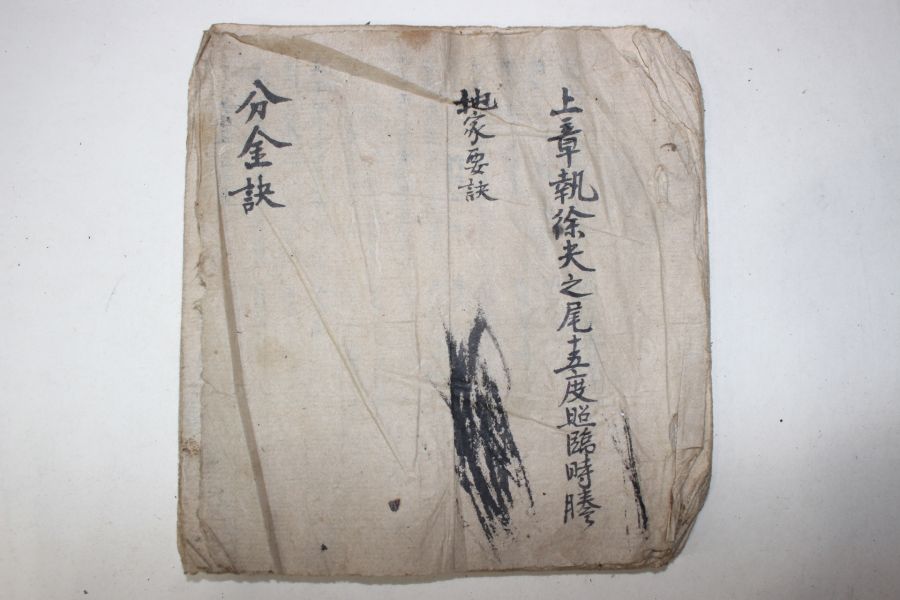 上章執徐夫之尾十五度照臨時謄
地家要訣
分金訣